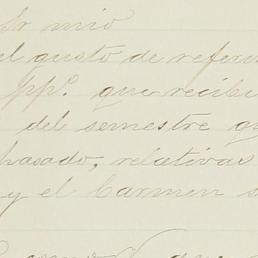 Sr mio
el gusto de referir
ppº. que recibi
del semestre q
pasado, relativas
y el Carmen s
que